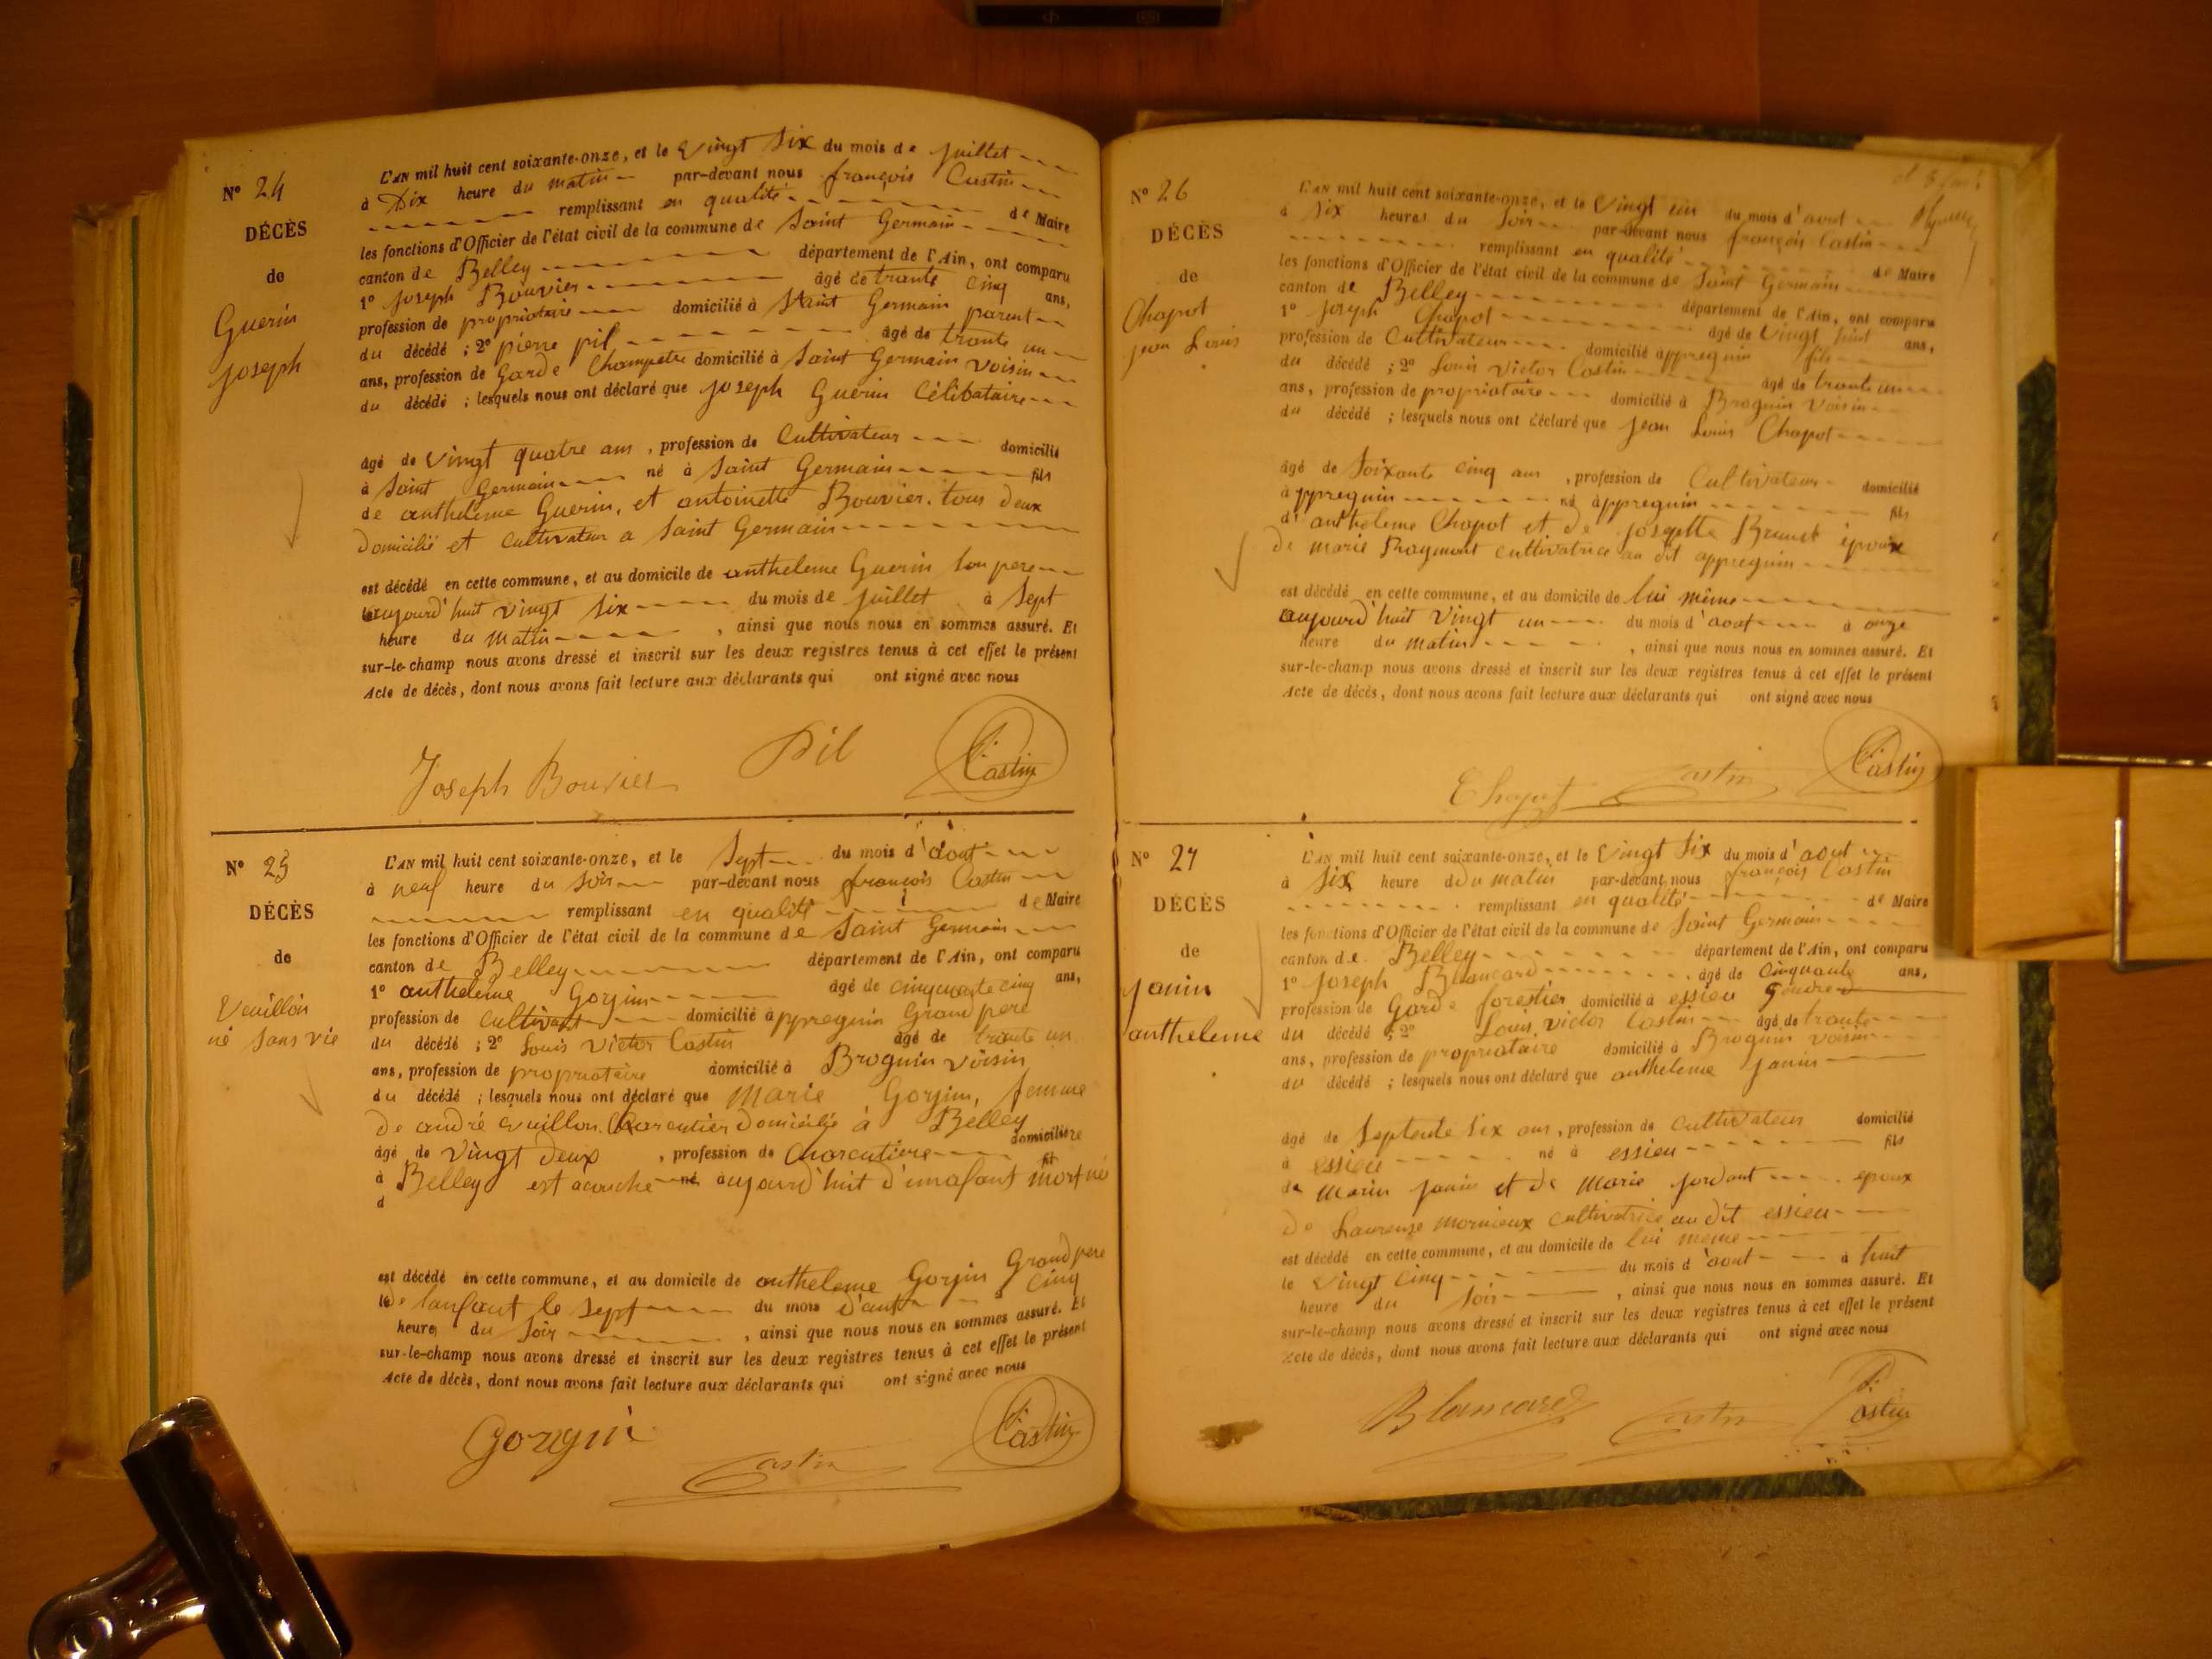 N° 24
DÉCÈS
de
Guerin
Joseph
L'AN mil huit cent soixante-onze, et le Vingt Six du mois de Juillet
à Dix heure du matin par-devant nous françois Castin
remplissant en qualité de Maire
les fonctions d'Officier de l'état civil de la commune de Saint Germain
canton de Belley département de l'Ain, ont comparu
1° Joseph Bouvier âgé de trante cinq ans,
profession de propriotaire domicilié à Saint Germain parent
du décédé ; 2° pierre pil âgé de trante un
ans, profession de Garde Champetre domicilié à Saint Germain voisin
du décédé ; lesquels nous ont déclaré que Joseph Guerin Célibataire
âgé de Vingt quatre ans , profession de Cultivateur domicilié
à Saint Germain né à Saint Germain fils
de antheleme Guerin, et antoinette Bouvier. tous deux
domicilié et cultivateur a Saint Germain
est décédé en cette commune, et au domicile de antheleme Guerin Son pere
le aujourd'huit vingt Six du mois de Juillet à Sept
heure du matin , ainsi que nous nous en sommes assuré. Et
sur-le-champ nous avons dressé et inscrit sur les deux registres tenus à cet effet le présent
Acte de décès, dont nous avons fait lecture aux déclarants qui ont signé avec nous
Joseph Bouvier Pil Castin
N° 25
DÉCÈS
de
Veuillon
né Sans vie
L'AN mil huit cent soixante-onze, et le Sept du mois d'aout
à neuf heure du Soir par-devant nous françois Castin
remplissant en qualité de Maire
les fonctions d'Officier de l'état civil de la commune de Saint Germain
canton de Belley département de l'Ain, ont comparu
1° antheleme Gorjin âgé de cinquante cinq ans,
profession de domicilié àppregnin Grand pere
du décédé ; 2° Louis Victor Castin âgé de trante un
ans, profession de propriotaire domicilié à Brognin voisin
du décédé ; lesquels nous ont déclaré que Marie Gorjin, femme
de andré vuillon. Charcutier Domicilié à Belley
âgé de Vingt deux , profession de Charcutière domicilière
à Belley est acouché né aujourd'huit d'un afant mort né
d
est décédé en cette commune, et au domicile de antheleme Gorjin Grand pere
le De lanfant le Sept du mois d'aut à cinq
heure du Soir , ainsi que nous nous en sommes assuré. Et
sur-le-champ nous avons dressé et inscrit sur les deux registres tenus à cet effet le présent
Acte de décès, dont nous avons fait lecture aux déclarants qui ont signé avec nous
Gorgin Castin Castin
N° 26
DÉCÈS
de
Chapot
Jean Louis
L'AN mil huit cent soixante-onze, et le Vingt un du mois d'aout
à Six heures du Soir par-devant nous françois Castin
remplissant en qualité de Maire
les fonctions d'Officier de l'état civil de la commune de Saint Germain
canton de Belley département de l'Ain, ont comparu
1° Joseph Chapot âgé de Vingt huit ans,
profession de Cultivateur domicilié àppregnin fils
du décédé ; 2° Louis Victor Castin âgé de trante un
ans, profession de propriotaire domicilié à Brognin Voisin
du décédé ; lesquels nous ont déclaré que Jean Louis Chapot
âgé de Soixante cinq ans , profession de Cultivateur domicilié
àppregnin né àppregnin fils
d'antheleme Chapot et de Josephte Brunet époux
de marie cultivatrice au dit appregnin
est décédé en cette commune, et au domicile de lui même
aujourd'huit Vingt un du mois d'aout à onze
heure du matin , ainsi que nous nous en sommes assuré. Et
sur-le-champ nous avons dressé et inscrit sur les deux registres tenus à cet effet le présent
Acte de décès, dont nous avons fait lecture aux déclarants qui ont signé avec nous
Chapot Castin Castin
N° 27
DÉCÈS
de
Janin
antheleme
L'AN mil huit cent soixante-onze, et le Vingt Six du mois d'aout
à Six heure du matin par-devant nous françois Castin
remplissant en qualité de Maire
les fonctions d'Officier de l'état civil de la commune de Saint Germain
canton de Belley département de l'Ain, ont comparu
1° Joseph Blancard âgé de Cinquante ans,
profession de Garde forestier domicilié à essieu Gendre
du décédé ; 2° Louis victor Castin âgé de trante
ans, profession de propriotaire domicilié à Brognin voisin
du décédé ; lesquels nous ont déclaré que antheleme Janin
âgé de Septente Six ans , profession de Cultivateur domicilié
à essieu né à essieu fils
de Marin Janin et de Marie Jordant epoux
De Laurense mornieux cultivatrice au dit essieu
est décédé en cette commune, et au domicile de lui meme
le Vingt Cinq du mois d'aout à huit
heure du Soir , ainsi que nous nous en sommes assuré. Et
sur-le-champ nous avons dressé et inscrit sur les deux registres tenus à cet effet le présent
Acte de décès, dont nous avons fait lecture aux déclarants qui ont signé avec nous
Blancard Castin Castin